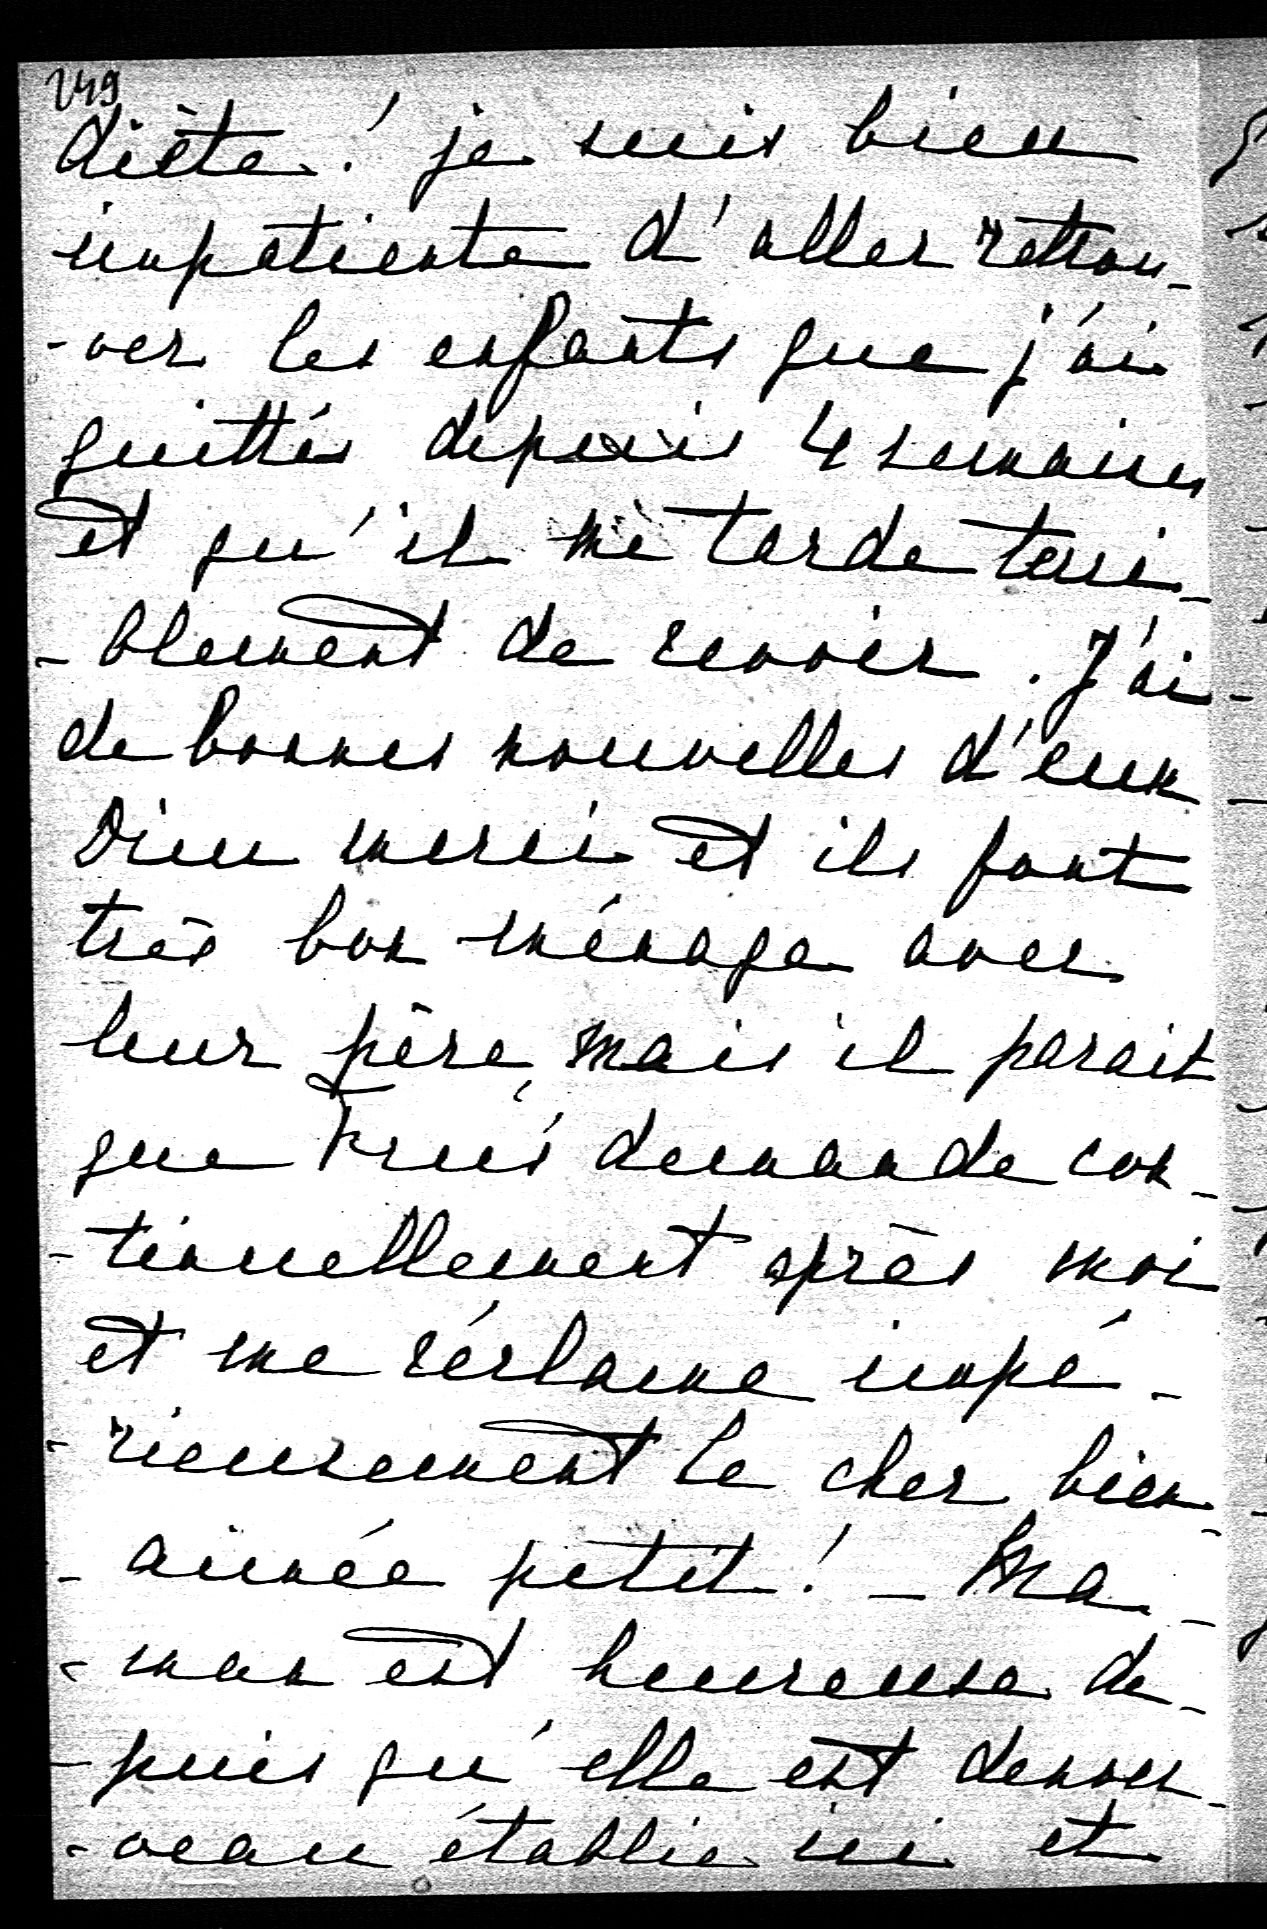 249
diète! je suis bien
impatiente d'aller retrou-
-ver les enfants que j'ai
quittés depuis 4 semaines
et qu'il me tarde terri-
-blement de revoir. J'ai
de bonnes nouvelles d'eux
Dieu merci et ils font
très bon ménage avec
leur père, mais il parait
que demande con-
-tinuellement après moi
et me réclame impé-
-rieusement le cher bien-
-aimée petit! - Ma-
-man est heureuse de-
-puis qu'elle est denou-
-veau établie ici et